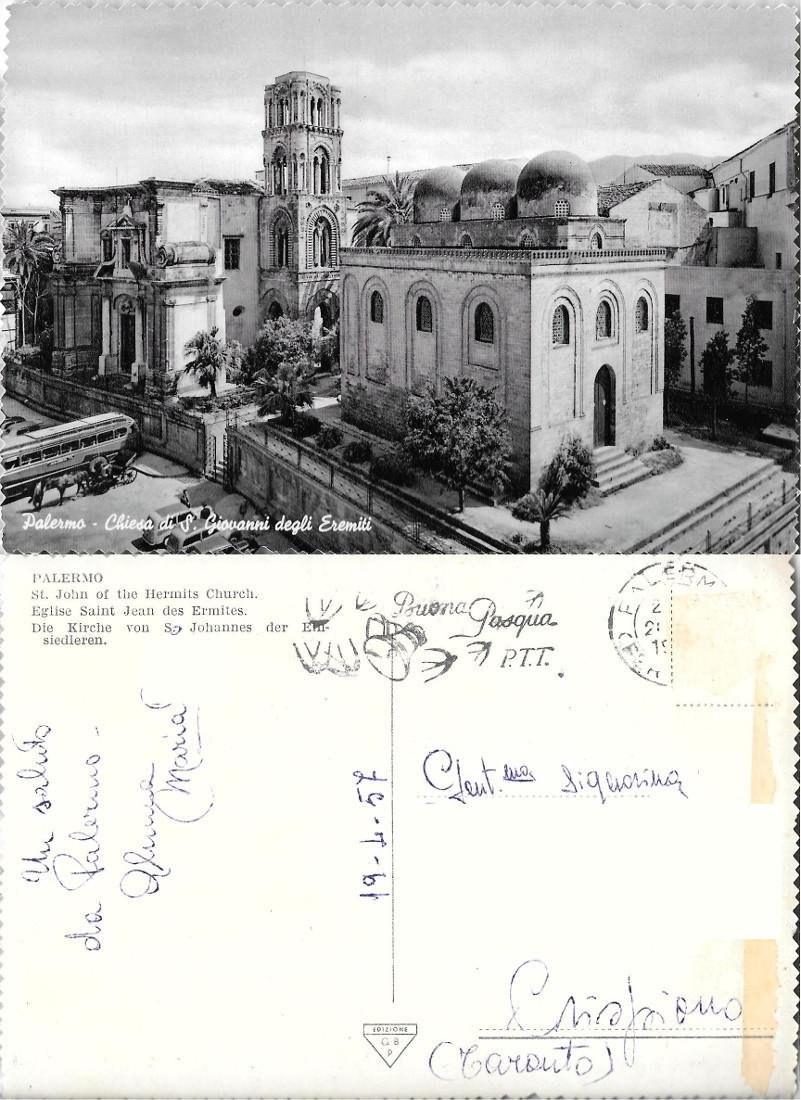 Palermo - Chiesa di S. Giovanni degli Eremiti
PALERMO
St. John of the Hermits Church.
Eglise Saint Jean des Ermites.
Die Kirche von S. Johannes der Ein-
siedleren.
Buona Pasqua
P.T.T.
PALERMO
Un saluto
da Palermo -
Maria
19-4-57
Gent.ma Signorina
Crispiano
(Taranto)
EDIZIONE
G B
P